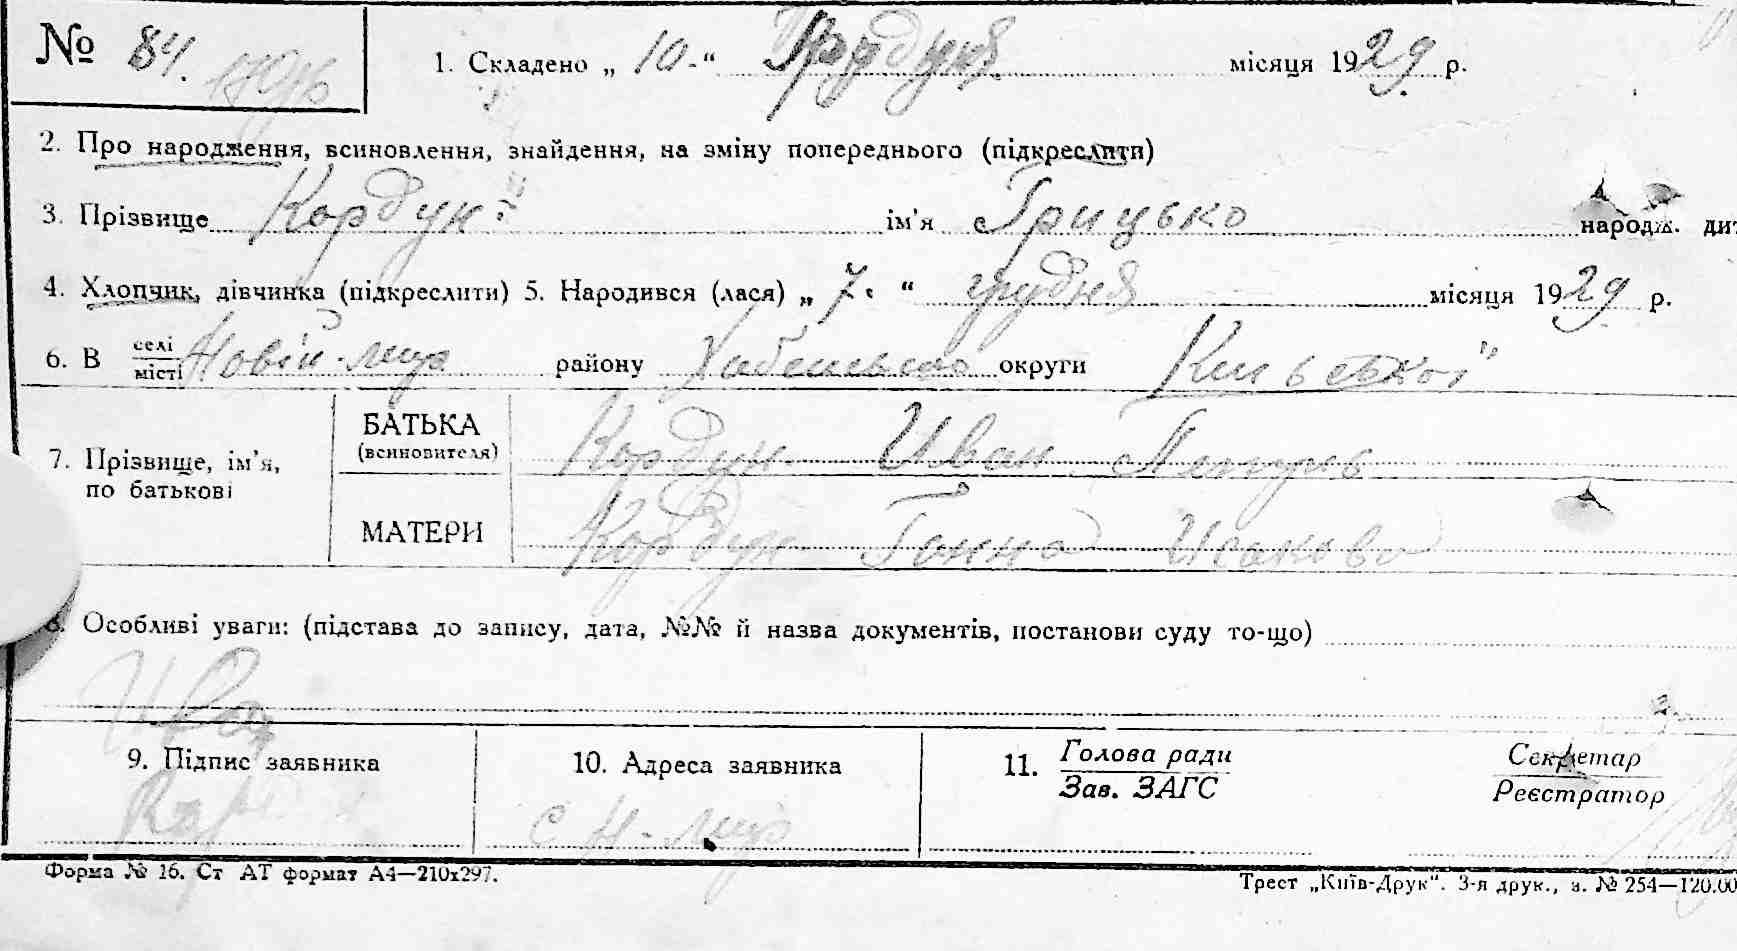 № 84. 1. Складено „ 10 -“ Грудня місяця 1929 р.
2. Про народження, всиновлення, знайдення, на зміну попереднього (підкреслити)
3. Прізвище Кордун ім’я Грицько народж. дит
4. Хлопчик, дівчинка (підкреслити) 5. Народився (лася) „ 7. “ грудня місяця 1929 р.
6. В селі/місті Новій-мир району округи Київської
7. Прізвище, ім’я, по батькові
БАТЬКА (всиновителя) Кордун Иван
МАТЕРИ Кордун Ганна Исакова
8. Особливі уваги: (підстава до запису, дата, №№ й назва документів, постанови суду то-що)
9. Підпис заявника 10. Адреса заявника 11. Голова ради / Зав. ЗАГС Секретар / Реєстратор
Кор с Н-мир
Форма № 16. Ст АТ формат А4—210х297.
Трест „Київ-Друк“. 3-я друк., з. № 254—120.00